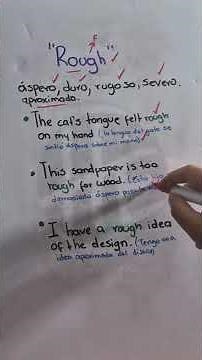 F
"Rough"
áspero, duro, rugoso, severo.
aproximado.
• The cat's tongue felt rough
on my hand (la lengua del gato se
sintió áspera sobre mi mano)
• This sandpaper is too
rough for wood. (Esta lija
demasiado áspera para
• I have a rough idea
of the design. (Tengo una
idea aproximada del diseño)